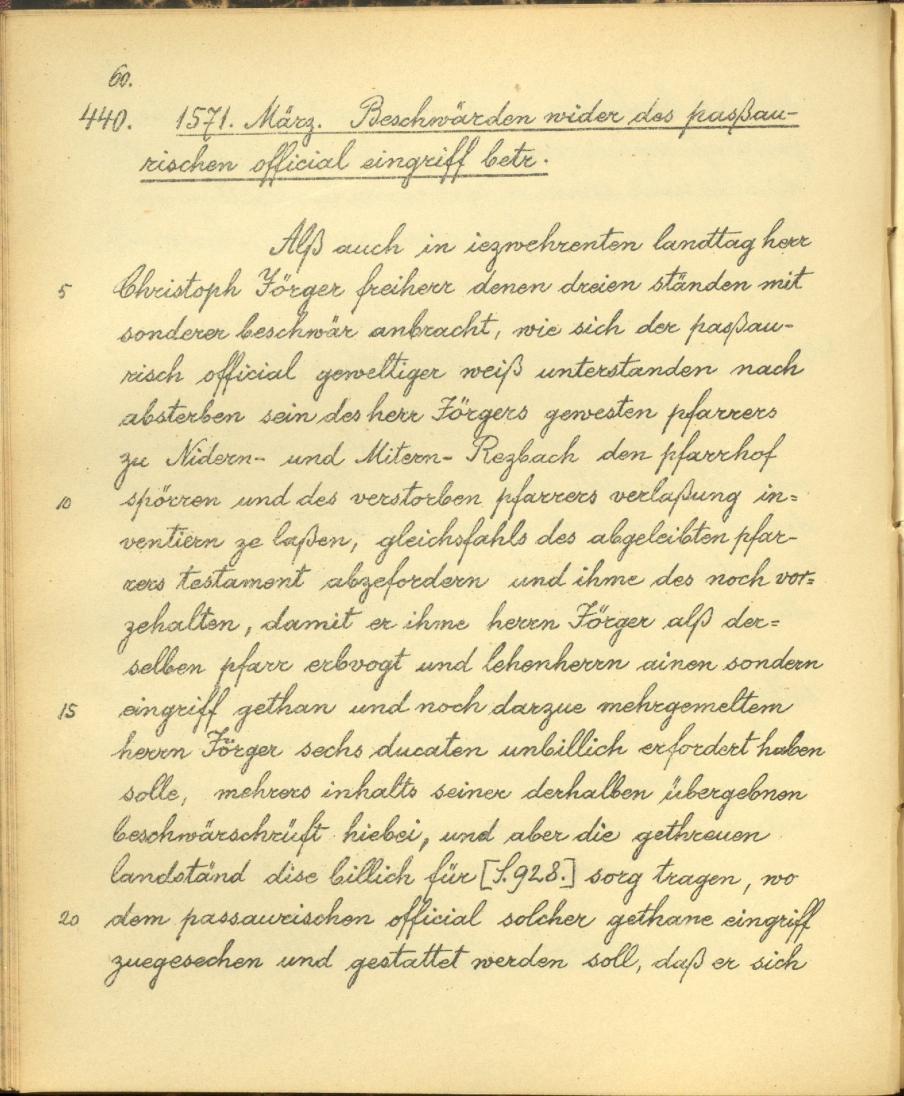 60.
440. 1571. März. Beschwärden wider des paßau-
rischen official eingriff betr.
Alß auch in iezwehrenten landtag herr
5 Christoph Jörger freiherr denen dreien ständen mit
sonderer beschwär anbracht, wie sich der paßau-
risch official geweltiger weiß unterstanden nach
absterben sein des herr Jörgers gewesten pfarrers
zu Nidern- und Mitern- Rezbach den pfarrhof
10 spörren und des verstorben pfarrers verlaßung in=
ventiern ze laßen, gleichsfahls des abgeleibten pfar-
rers testament abzefordern und ihme des noch vor=
zehalten, damit er ihme herrn Jörger alß der=
selben pfarr erbvogt und lehenherrn ainen sondern
15 eingriff gethan und noch darzue mehrgemeltem
herrn Jörger sechs ducaten unbillich erfordert haben
solle, mehrers inhalts seiner derhalben übergebnen
beschwärschrüft hiebei, und aber die gethreuen
landständ dise billich für [S. 928.] sorg tragen, wo
20 dem passaurischen official solcher gethane eingriff
zuegesechen und gestattet werden soll, daß er sich